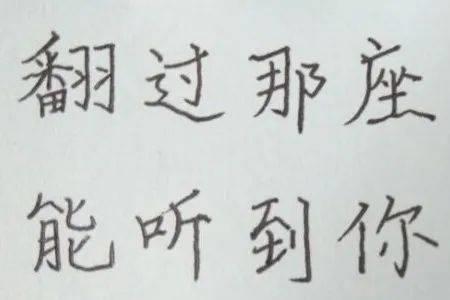 翻过那座
能听到你